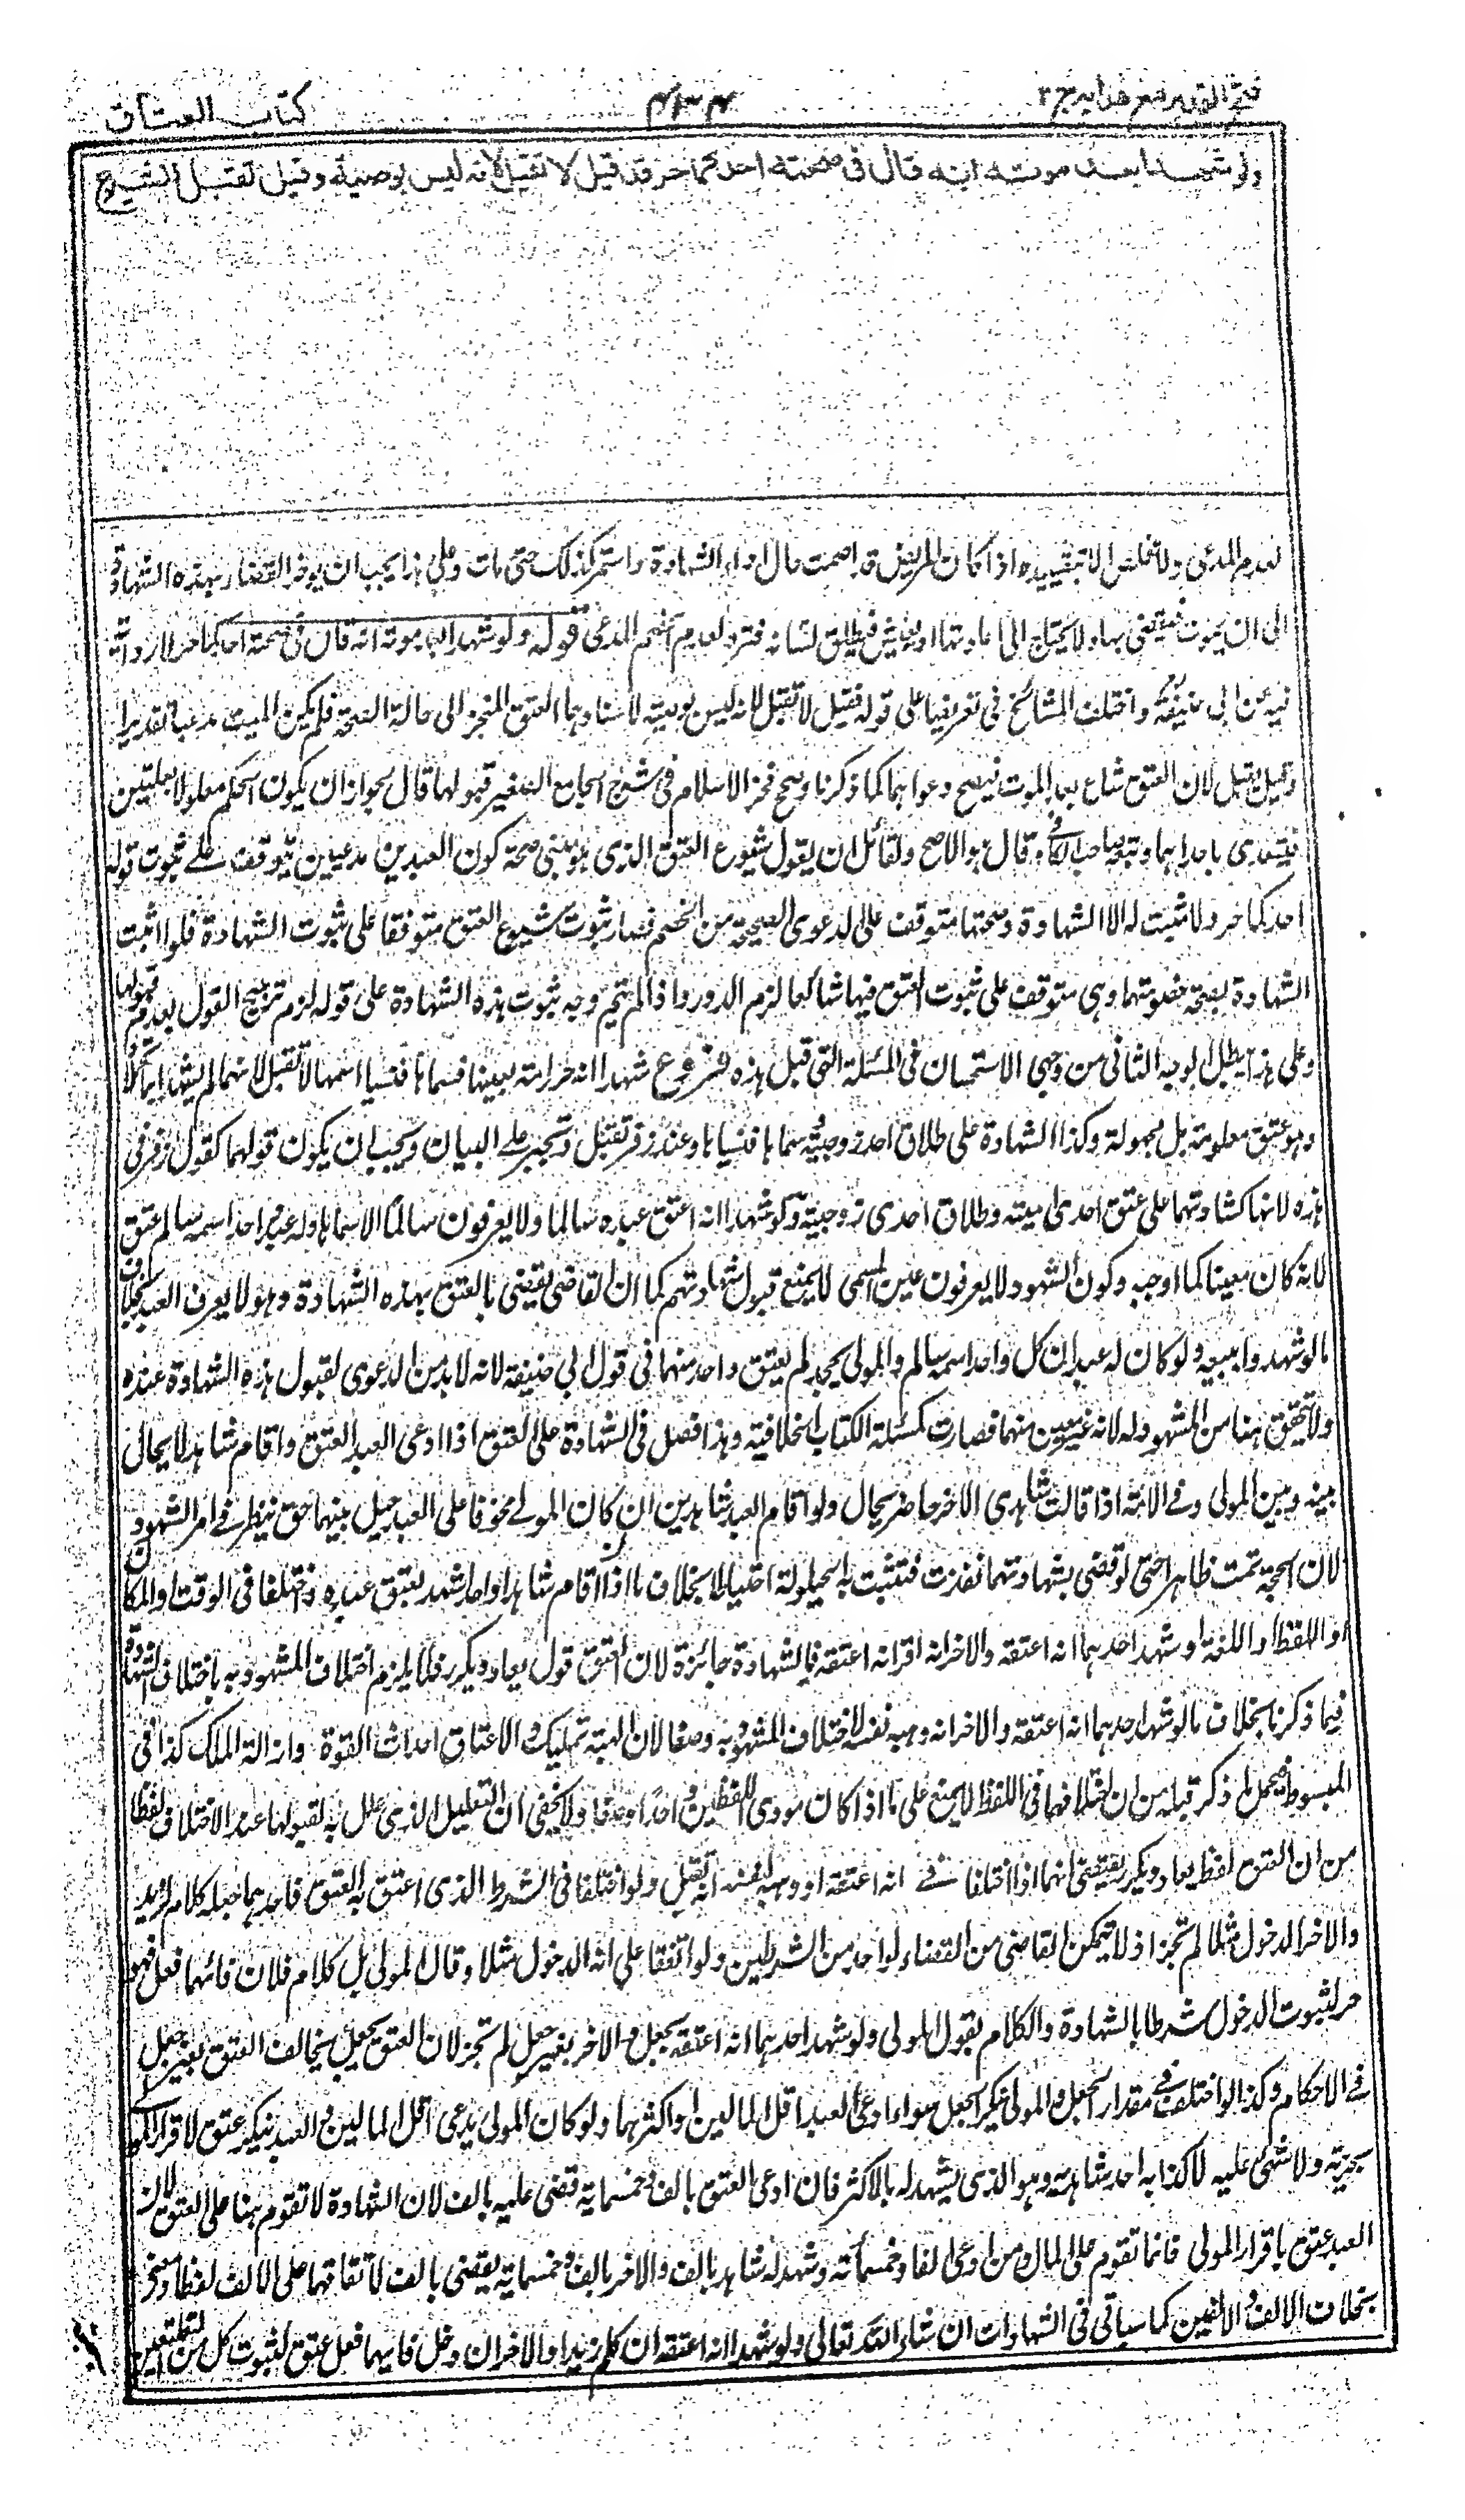 فتح القدير مع هدايه ج ٢
٤٣٤
كتاب العتاق
ولو شهدا بعد موته انه قال فى صحته احدكما حر فقد قيل لا تقبل لانه ليس بوصية وقيل تقبل للشيوع
لعدم المدعى ولا تخلص الا بتقييده اذا كان المريض قد اصمت حال اداء الشهادة واستمر كذلك حتى مات وعلى هذا يجب ان يؤخر القضاء بهذه الشهادة
الى ان يموت فيقضى بها ولا يحتاج الى اعادتها او يعيش فيطلق لسانه فترد لعدم الخصم المدعى قوله ولو شهدا بعد موته انه قال فى صحته احدكما حر لا رواية
فيه عن ابى حنيفة واختلف المشائخ فى تفريعها على قوله فقيل لا تقبل لانه ليس بوصية لاسنادهما العتق المنجز الى حالة الصحة فلم يكن الميت مدعيا تقديرا
وقيل تقبل لان العتق شاع بعد الموت فيصح دعواهما كما ذكرنا وصحح فخر الاسلام فى شرح الجامع الصغير قبولها قال لجواز ان يكون الحكم معلولا بعلتين
فيتعدى باحداهما وتبعه صاحب الكافى وقال هو الاصح ولقائل ان يقول شيوع العتق الذى هو مبنى صحة كون العبدين مدعيين يتوقف على ثبوت قوله
احدكما حر ولا مثبت له الا الشهادة وصحتها متوقفة على الدعوى الصحيحة من الخصم فصار ثبوت شيوع العتق متوقفا على ثبوت الشهادة فلو اثبت
الشهادة بصحة خصومتهما وهى متوقفة على ثبوت العتق فيهما شائعا لزم الدور واذا لم يتم وجه ثبوت هذه الشهادة على قوله لزم ترجيح القول بعدم قبولها
وعلى هذا يبطل الوجه الثانى من وجهى الاستحسان فى المسئلة التى قبل هذه فروع شهدا انه حرر امة بعينها فسماها فنسيا اسمها لا تقبل لانهما لم يشهدا بما تحملاه
وهو عتق معلومة بل مجهولة وكذا الشهادة على طلاق احدى زوجتيه سماها فنسياها وعند زفر تقبل ويجبر على البيان ويجب ان يكون قولهما كقول زفر فى
هذه لانها كشهادتهما على عتق احدى امتيه وطلاق احدى زوجتيه ولو شهدا انه اعتق عبده سالما ولا يعرفون سالما وله عبد واحد اسمه سالم عتق
لانه كان معينا لما اوجبه وكون الشهود لا يعرفون عين المسمى لا يمنع قبول شهادتهم كما ان القاضى يقضى بالعتق بهذه الشهادة وهو لا يعرف العبد بخلاف
ما لو شهدوا ببيعه ولو كان له عبدان كل واحد اسمه سالم والمولى يجحد لم يعتق واحد منهما فى قول ابى حنيفة لانه لا بد من الدعوى لقبول هذه الشهادة عنده
ولا تتحقق هنا من المشهود له لانه غير معين منهما فصارت كمسئلة الكتاب الخلافية وهذا فصل فى الشهادة على العتق اذا ادعى العبد العتق واقام شاهدا لا يحال
بينه وبين المولى وفى الامة اذا قالت شاهدى الاخر حاضر يحال ولو اقام العبد شاهدين ان كان المولى مخوفا على العبد حيل بينهما حتى ينظر فى امر الشهود
لان الحجة تمت ظاهرا حتى لو قضى بشهادتهما نفذت فتثبت به الحيلولة احتياطا بخلاف ما اذا اقام شاهدا واحدا شهد بعتق عبده واختلفا فى الوقت او المكان
او اللفظ او اللغة او شهد احدهما انه اعتقه والاخر انه اقر انه اعتقه فالشهادة جائزة لان العتق قول يعاد ويكرر فلا يلزم اختلاف المشهود به باختلاف الشهادة
فيما ذكرنا بخلاف ما لو شهد احدهما انه اعتقه والاخر انه وهبه نفسه لاختلاف المشهود به وصفا لان الهبة تمليك والاعتاق احداث القوة وازالة الملك كذا فى
المبسوط فيحمل ما ذكر قبله من ان اختلافهما فى اللفظ لا يمنع على ما اذا كان مودى اللفظين واحدا وصفا ولا يخفى ان التعليل الذى علل به لقبولها عند الاختلاف لفظا
من ان العتق لفظ يعاد ويكرر يقتضى انهما اذا اختلفا فى انه اعتقه او وهبه لنفسه انه تقبل ولو اختلفا فى الشرط الذى اعتق به العتق فاحدهما جعله كلام لزيد
والاخر الدخول مثلا لم تجز اذ لا يتمكن القاضى من القضاء بواحد من الشرطين ولو اتفقا على انه الدخول مثلا وقال المولى بل كلام فلان فايهما فعل فهو
حر لثبوت الدخول شرطا بالشهادة والكلام بقول المولى ولو شهد احدهما انه اعتقه بجعل والاخر بغير جعل لم تجز لان العتق بجعل يخالف العتق بغير جعل
فى الاحكام وكذا لو اختلفا فى مقدار الجعل والمولى ينكر الجعل سواء ادعى العبد اقل المالين او اكثرهما ولو كان المولى يدعى اقل المالين والعبد ينكر عتق لاقرار المولى
بحريته ولا شىء عليه لاكذابه احد شاهديه وهو الذى يشهد له بالاكثر فان ادعى العتق بالف وخمسماية قضى عليه بالف لان الشهادة لا تقوم هنا على العتق لان
العبد عتق باقرار المولى فانما تقوم على المال ومن ادعى الفا وخمسمائة وشهد له شاهد بالف والاخر بالف وخمسماية يقضى بالف لاتفاقهما على الالف لفظا ومعنى
بخلاف الالف والالفين كما سياتى فى الشهادات ان شاء الله تعالى ولو شهدا انه اعتقه ان كلم زيدا والاخران ان دخل فايهما فعل عتق لثبوت كل من التعليقين